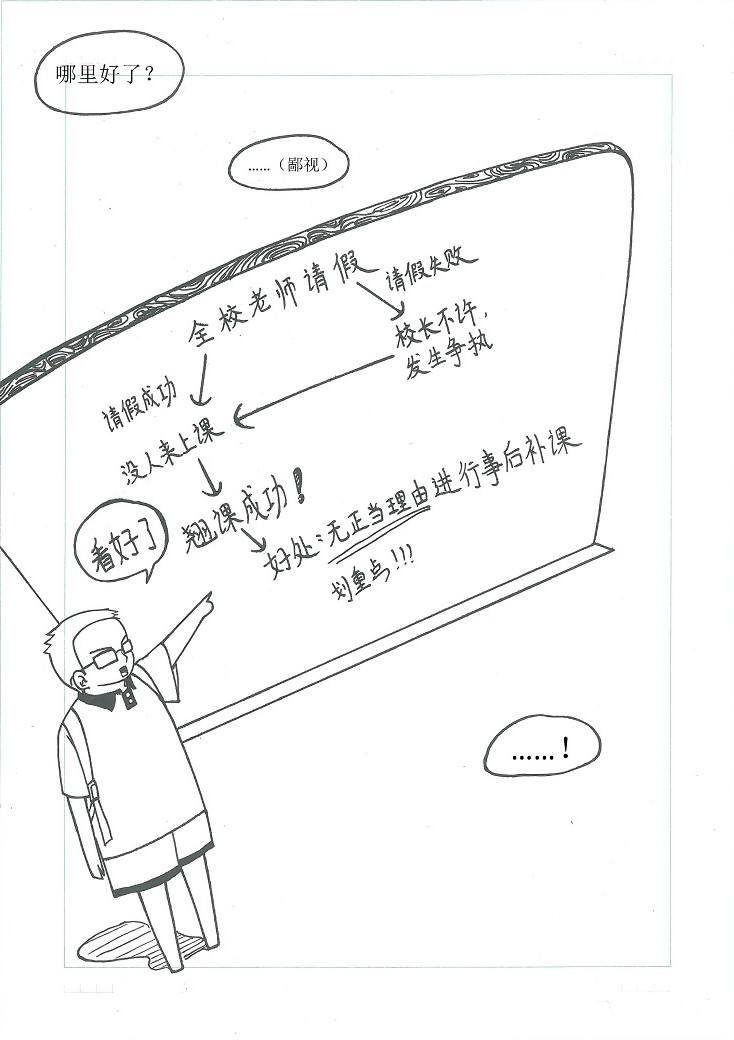 哪里好了？
……（鄙视）
全校老师请假
请假失败
校长不许，
发生争执
请假成功
没人来上课
翘课成功！
好处：无正当理由进行事后补课
划重点！！！
看好了
……！